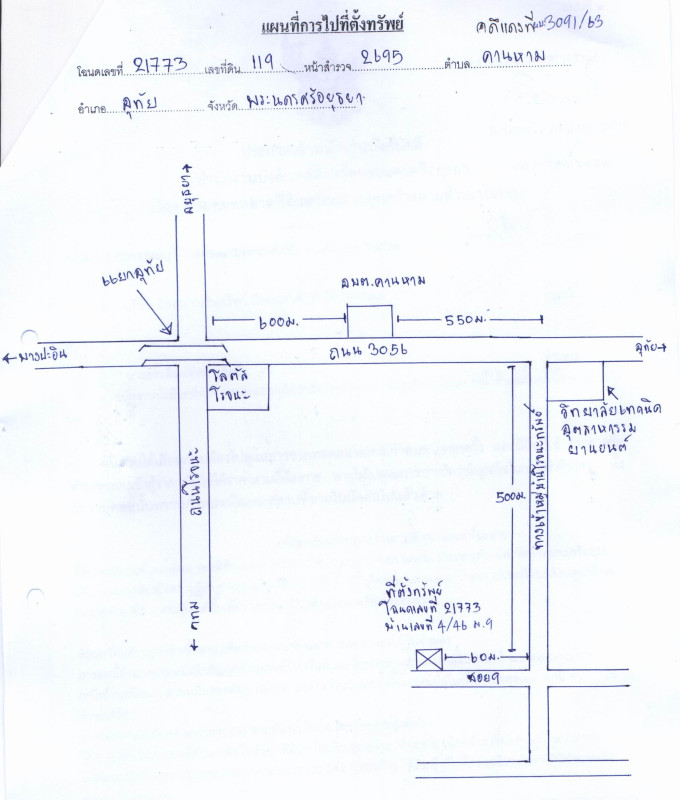 แผนที่การไปที่ตั้งทรัพย์
คดีแดงที่ผบ.3091/63
โฉนดเลขที่ 21773 เลขที่ดิน 119 หน้าสำรวจ 2695 ตำบล คานหาม
อำเภอ อุทัย จังหวัด พระนครศรีอยุธยา
อยุธยา
แยกอุทัย
อบต.คานหาม
600ม.
550ม.
บางปะอิน
ถนน 3056
อุทัย
โลตัส
โรจนะ
วิทยาลัยเทคนิค
อุตสาหกรรม
ยานยนต์
ถนนโรจนะ
500ม.
ทางเข้าหมู่บ้านโรจนะ
ที่ตั้งทรัพย์
โฉนดเลขที่ 21773
บ้านเลขที่ 4/46 ม.9
60ม.
ซอย9
กทม